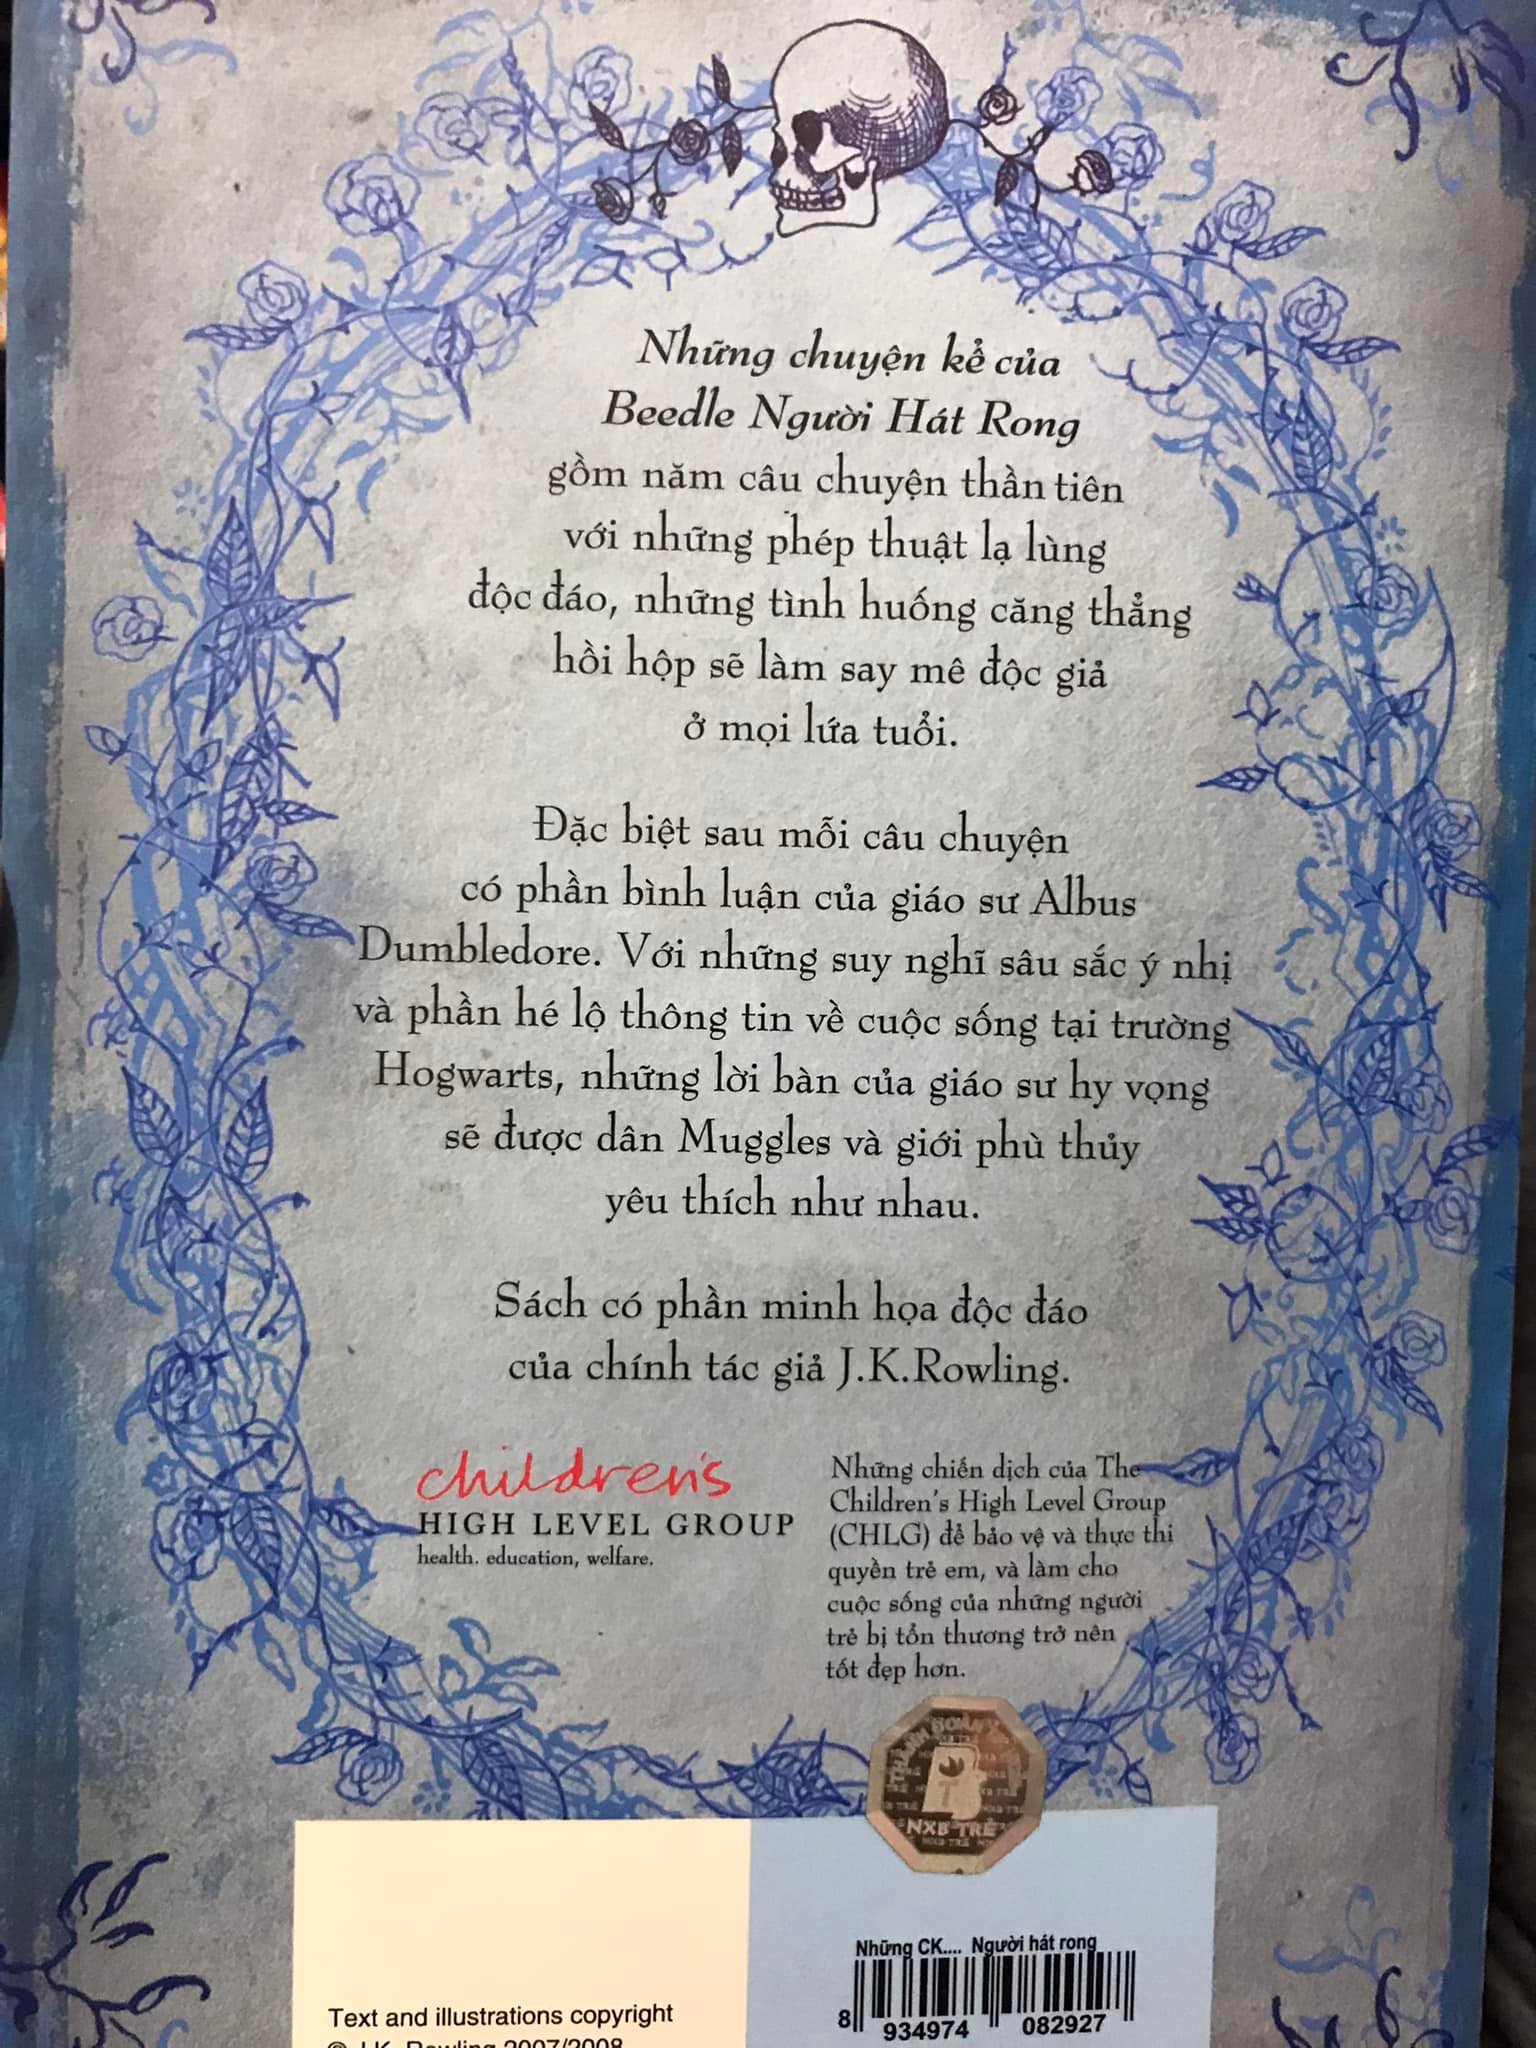 Những chuyện kể của
Beedle Người Hát Rong
gồm năm câu chuyện thần tiên
với những phép thuật lạ lùng
độc đáo, những tình huống căng thẳng
hồi hộp sẽ làm say mê độc giả
ở mọi lứa tuổi.
Đặc biệt sau mỗi câu chuyện
có phần bình luận của giáo sư Albus
Dumbledore. Với những suy nghĩ sâu sắc ý nhị
và phần hé lộ thông tin về cuộc sống tại trường
Hogwarts, những lời bàn của giáo sư hy vọng
sẽ được dân Muggles và giới phù thủy
yêu thích như nhau.
Sách có phần minh họa độc đáo
của chính tác giả J.K.Rowling.
children's
HIGH LEVEL GROUP
health. education, welfare.
Những chiến dịch của The
Children's High Level Group
(CHLG) để bảo vệ và thực thi
quyền trẻ em, và làm cho
cuộc sống của những người
trẻ bị tổn thương trở nên
tốt đẹp hơn.
NXB TRẺ
Những CK.... Người hát rong
8 934974 082927
Text and illustrations copyright
© J.K. Rowling 2007/2008